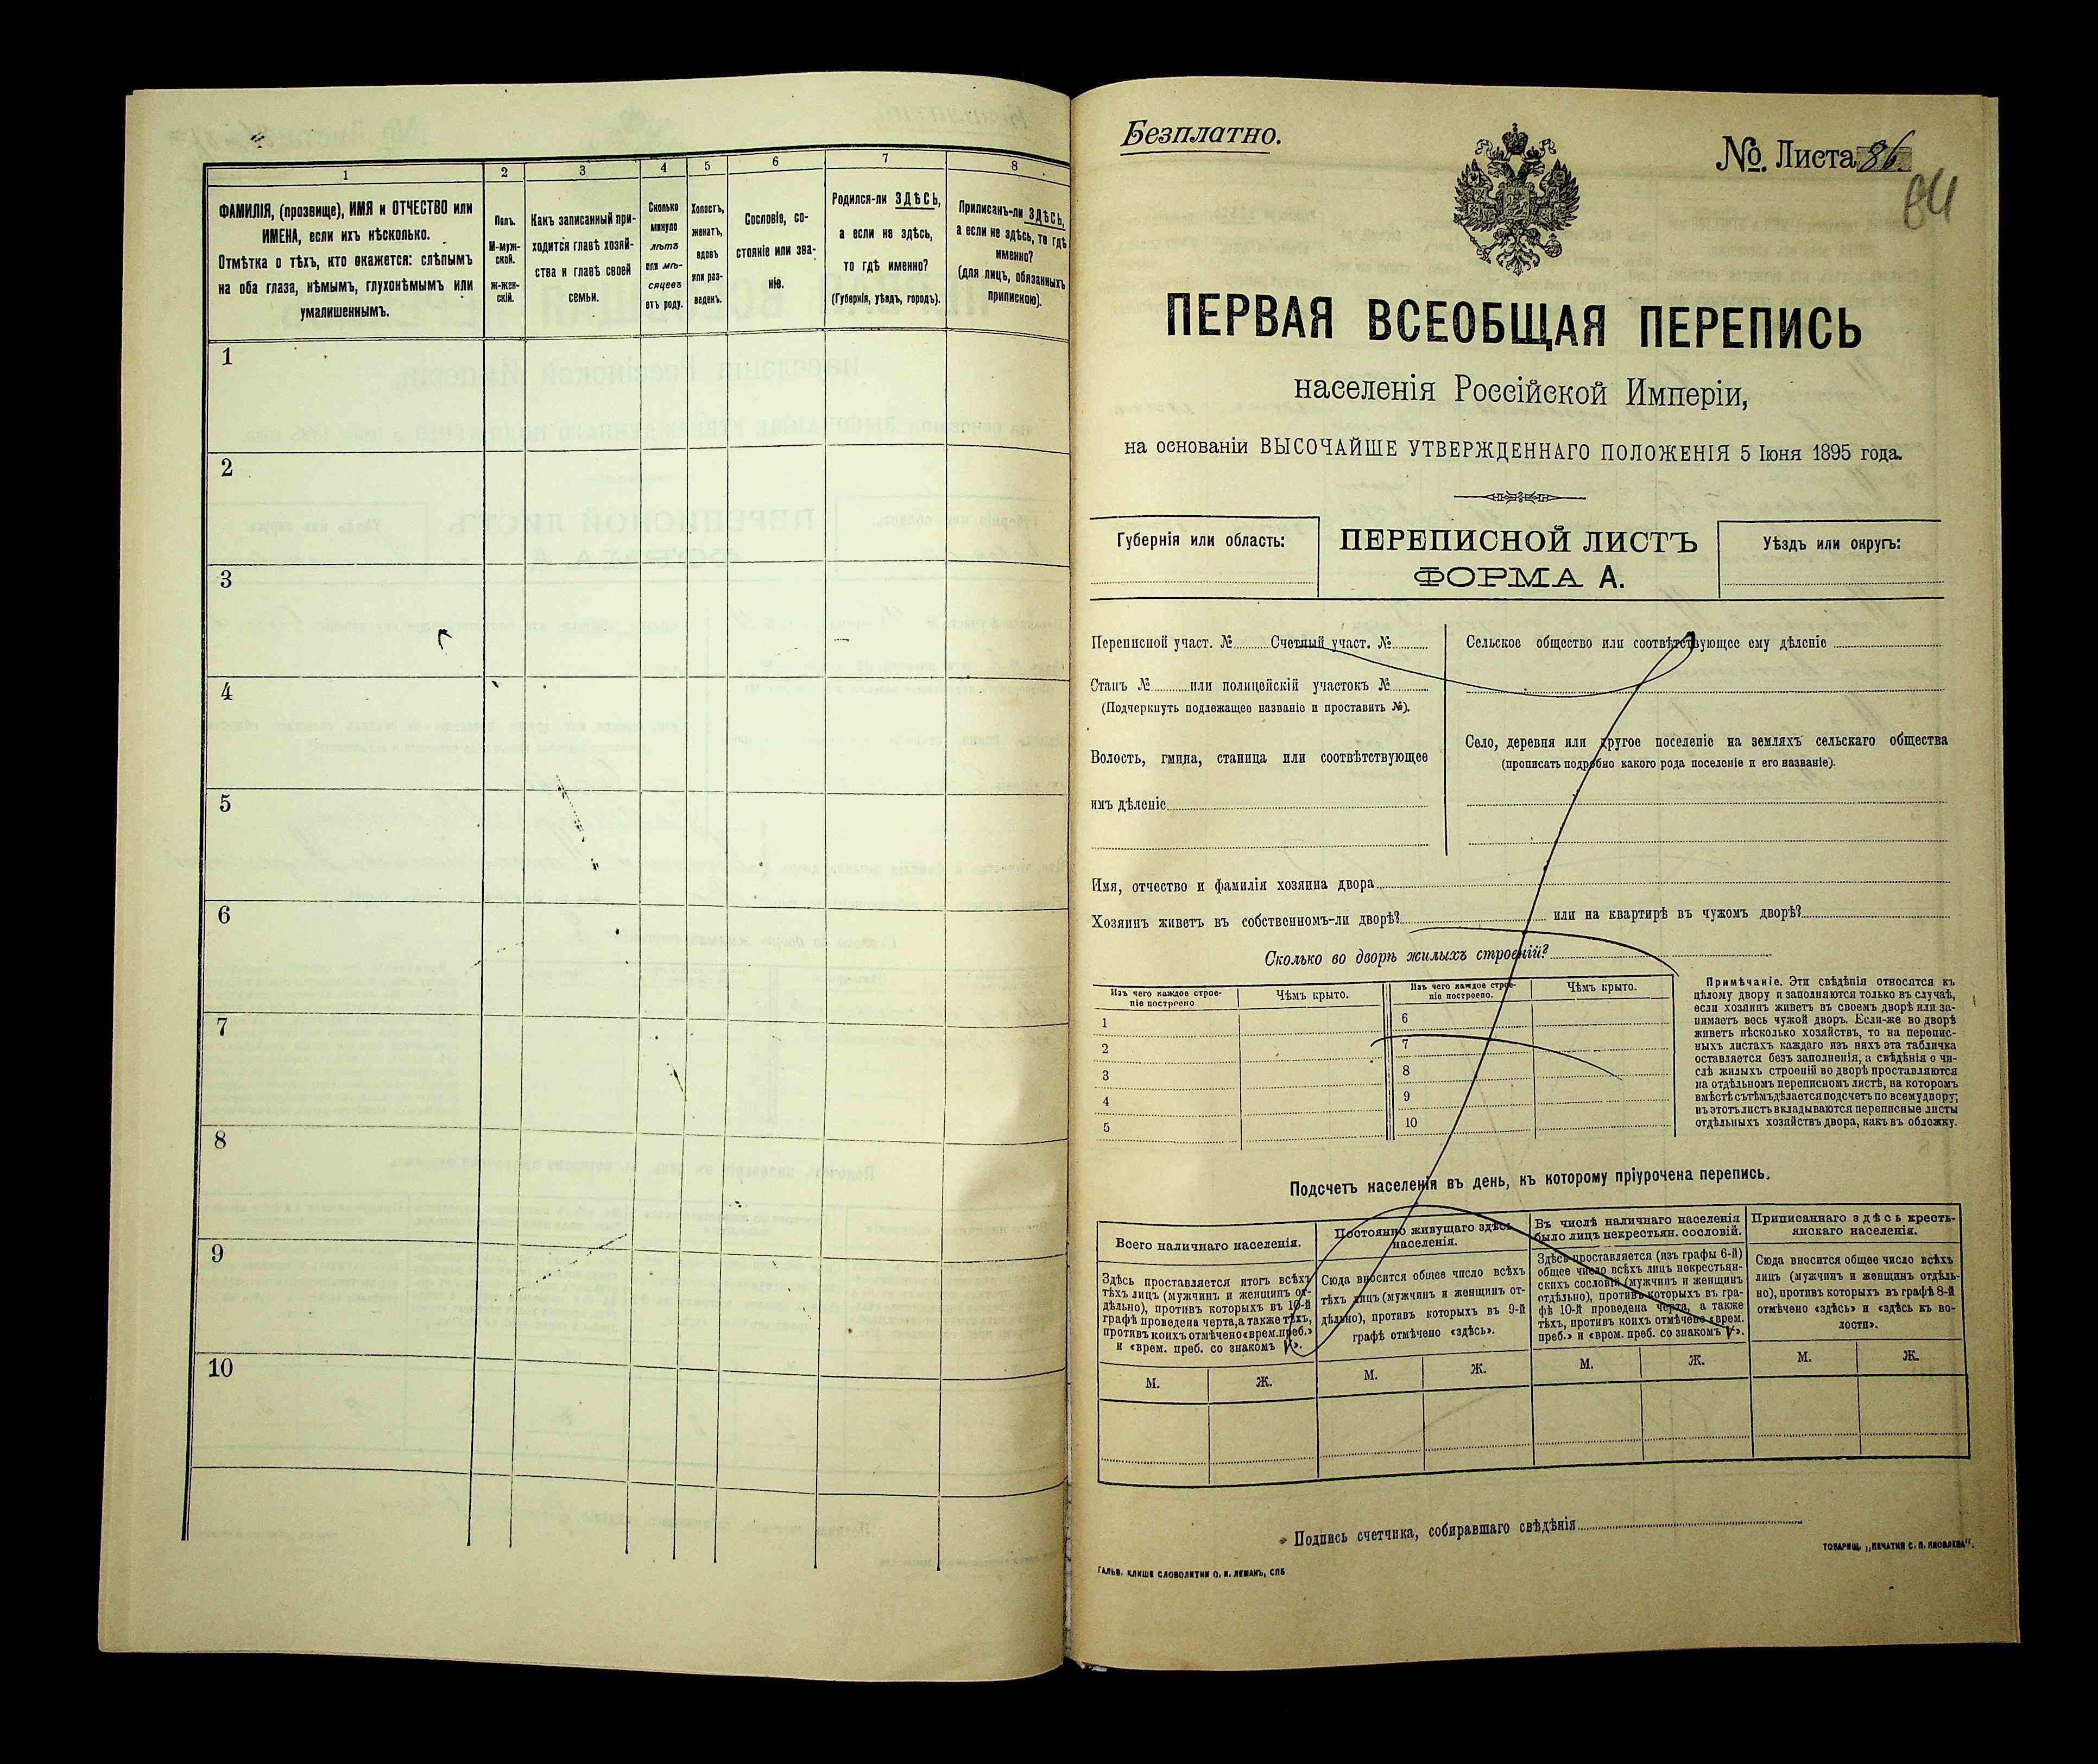 1
2
3
4
5
6
7
8
ФАМИЛІЯ, (прозвище), ИМЯ и ОТЧЕСТВО или
ИМЕНА, если ихъ нѣсколько.
Отмѣтка о тѣхъ, кто окажется: слѣпымъ
на оба глаза, нѣмымъ, глухонѣмымъ или
умалишеннымъ.
Полъ.
М-муж-
ской.
ж-жен-
скій.
Какъ записанный при-
ходится главѣ хозяй-
ства и главѣ своей
семьи.
Сколько
минуло
лѣтъ
или мѣ-
сяцевъ
отъ роду.
Холостъ,
женатъ,
вдовъ
или раз-
веденъ.
Сословіе, со-
стояніе или зва-
ніе.
Родился-ли ЗДѢСЬ,
а если не здѣсь,
то гдѣ именно?
(Губернія, уѣздъ, городъ).
Приписанъ-ли ЗДѢСЬ,
а если не здѣсь, то гдѣ
именно?
(для лицъ, обязанныхъ
припискою).
1
2
3
4
5
6
7
8
9
10
Безплатно.
№. Листа 86.
64
ПЕРВАЯ ВСЕОБЩАЯ ПЕРЕПИСЬ
населенія Россійской Имперіи,
на основаніи ВЫСОЧАЙШЕ УТВЕРЖДЕННАГО ПОЛОЖЕНІЯ 5 Іюня 1895 года.
Губернія или область:
ПЕРЕПИСНОЙ ЛИСТЪ
ФОРМА А.
Уѣздъ или округъ:
Переписной участ. № Счетный участ. №
Станъ № или полицейскій участокъ №
(Подчеркнуть подлежащее названіе и проставить №).
Волость, гмина, станица или соотвѣтствующее
имъ дѣленіе
Сельское общество или соотвѣтствующее ему дѣленіе
Село, деревня или другое поселеніе на земляхъ сельскаго общества
(прописать подробно какого рода поселеніе и его названіе).
Имя, отчество и фамилія хозяина двора
Хозяинъ живетъ въ собственномъ-ли дворѣ? или на квартирѣ въ чужомъ дворѣ?
Сколько во дворѣ жилыхъ строеній?
Изъ чего каждое строе-
ніе построено
Чѣмъ крыто.
Изъ чего каждое строе-
ніе построено.
Чѣмъ крыто.
1
2
3
4
5
6
7
8
9
10
Примѣчаніе. Эти свѣдѣнія относятся къ
цѣлому двору и заполняются только въ случаѣ,
если хозяинъ живетъ въ своемъ дворѣ или за-
нимаетъ весь чужой дворъ. Если-же во дворѣ
живетъ нѣсколько хозяйствъ, то на перепис-
ныхъ листахъ каждаго изъ нихъ эта табличка
оставляется безъ заполненія, а свѣдѣнія о чи-
слѣ жилыхъ строеній во дворѣ проставляются
на отдѣльномъ переписномъ листѣ, на которомъ
вмѣстѣ съ тѣмъ дѣлается подсчетъ по всему двору;
въ этотъ листъ вкладываются переписные листы
отдѣльныхъ хозяйствъ двора, какъ въ обложку.
Подсчетъ населенія въ день, къ которому пріурочена перепись.
Всего наличнаго населенія.
Постоянно живущаго здѣсь
населенія.
Въ числѣ наличнаго населенія
было лицъ некрестьян. сословій.
Приписаннаго здѣсь кресть-
янскаго населенія.
Здѣсь проставляется итогъ всѣхъ
тѣхъ лицъ (мужчинъ и женщинъ от-
дѣльно), противъ которыхъ въ 10-й
графѣ проведена черта, а также тѣхъ,
противъ коихъ отмѣчено «врем. преб.»
и «врем. преб. со знакомъ V».
Сюда вносится общее число всѣхъ
тѣхъ лицъ (мужчинъ и женщинъ от-
дѣльно), противъ которыхъ въ 9-й
графѣ отмѣчено «здѣсь».
Здѣсь проставляется (изъ графы 6-й)
общее число всѣхъ лицъ некрестьян-
скихъ сословій (мужчинъ и женщинъ
отдѣльно), противъ которыхъ въ гра-
фѣ 10-й проведена черта, а также
тѣхъ, противъ коихъ отмѣчено «врем.
преб.» и «врем. преб. со знакомъ V».
Сюда вносится общее число всѣхъ
лицъ (мужчинъ и женщинъ отдѣль-
но), противъ которыхъ въ графѣ 8-й
отмѣчено «здѣсь» и «здѣсь къ во-
лости».
М.
Ж.
М.
Ж.
М.
Ж.
М.
Ж.
Подпись счетчика, собиравшаго свѣдѣнія
ГАЛЬВ. КЛИШЕ СЛОВОЛИТНИ О. И. ЛЕМАНЪ, СПБ
ТОВАРИЩ. „ПЕЧАТНЯ С. П. ЯКОВЛЕВА“.